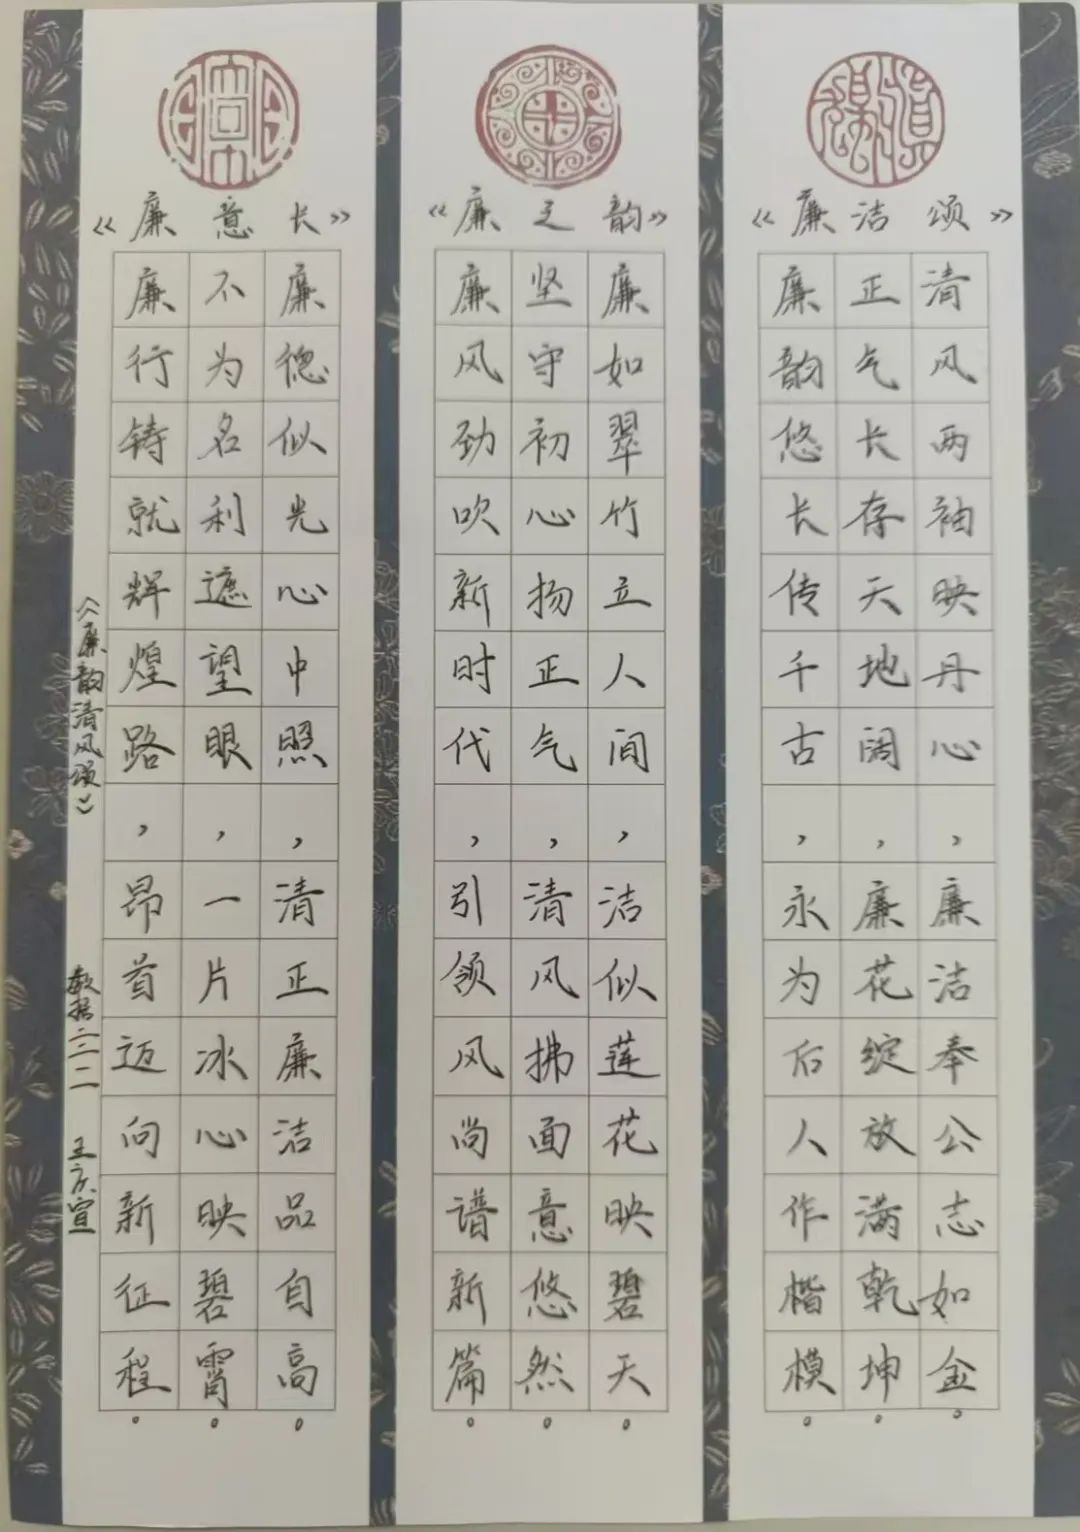 《廉洁颂》
清风两袖映丹心，廉洁奉公志如金。
正气长存天地阔，廉花绽放满乾坤。
廉韵悠长传千古，永为后人作楷模。
《廉之韵》
廉如翠竹立人间，洁似莲花映碧天。
坚守初心扬正气，清风拂面意悠然。
廉风劲吹新时代，引领风尚谱新篇。
《廉意长》
廉德似光心中照，清正廉洁品自高。
不为名利遮望眼，一片冰心映碧霄。
廉行铸就辉煌路，昂首迈向新征程。
《廉韵清风颂》
数据二二一二 王庆宣